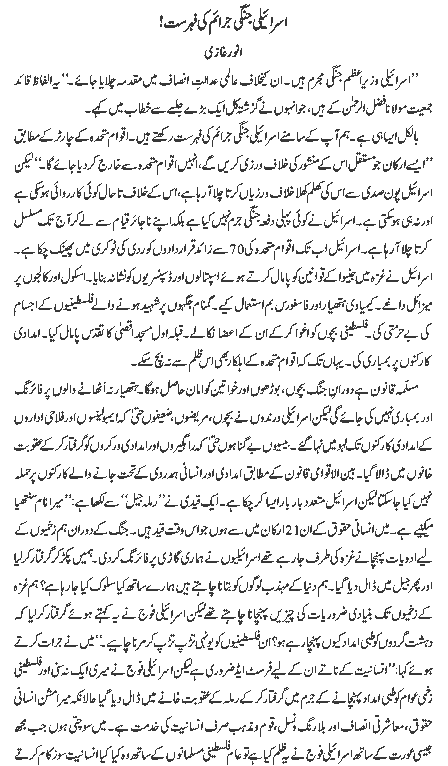 اسرائیلی جنگی جرائم کی فہرست!
انور غازی
”اسرائیلی وزیراعظم جنگی مجرم ہیں۔ ان کیخلاف عالمی عدالتِ انصاف میں مقدمہ چلایا جائے۔“ یہ الفاظ قائد
جمعیت مولانا فضل الرحمٰن کے ہیں، جو انہوں نے گزشتہ کل ایک بڑے جلسے سے خطاب میں کہے۔
بالکل ایسا ہی ہے۔ ہم آپ کے سامنے اسرائیلی جنگی جرائم کی فہرست رکھتے ہیں۔ اقوام متحدہ کے چارٹر کے مطابق
”ایسے ارکان جو مستقل اس کے منشور کی خلاف ورزی کریں گے، انہیں اقوام متحدہ سے خارج کردیا جائے گا۔“ لیکن
اسرائیل پون صدی سے اس کی کھلم کھلا خلاف ورزیاں کرتا چلا آرہا ہے، اس کے خلاف تاحال کوئی کارروائی ہوسکی ہے
اور نہ ہی ہوسکتی ہے۔ اسرائیل نے کوئی پہلی دفعہ جنگی جرم نہیں کیا ہے بلکہ اپنے ناجائز قیام سے لے کر آج تک مسلسل
کرتا چلا آرہا ہے۔ اسرائیل اب تک اقوام متحدہ کی 70 سے زائد قراردادوں کو ردی کی ٹوکری میں پھینک چکا ہے۔
اسرائیل نے غزہ میں جنیوا کے قوانین کو پامال کرتے ہوئے اسپتالوں اور ڈسپنسریوں کو نشانہ بنایا۔ اسکول اور کالجوں پر
میزائل داغے۔ کیمیاوی ہتھیار اور فاسفورس بم استعمال کیے۔ گمنام جگہوں پر شہید ہونے والے فلسطینیوں کے اجسام
کی بے حرمتی کی۔ فلسطینی بچوں کو اغوا کرکے ان کے اعضا نکالے۔ قبلہ اول مسجد اقصیٰ کا تقدس پامال کیا۔ امدادی
کارکنوں پر بمباری کی۔ یہاں تک کہ اقوام متحدہ کے اہلکار بھی اس ظلم سے نہ بچ سکے۔
مسلّمہ قانون ہے دورانِ جنگ بچوں، بوڑھوں اور خواتین کو امان حاصل ہوگا۔ ہتھیار نہ اُٹھانے والوں پر فائرنگ
اور بمباری نہیں کی جائے گی لیکن اسرائیلی درندوں نے بچوں، مریضوں، ضعیفوں حتیٰ کہ ایمبولینسوں اور فلاحی اداروں
کے امدادی کارکنوں تک لہو میں نہا گئے۔ بیسیوں بے گناہوں حتیٰ کہ راہگیروں اور امدادی ورکروں کو گرفتار کرکے عقوبت
خانوں میں ڈالا گیا۔ بین الاقوامی قانون کے مطابق امدادی اور انسانی ہمدردی کے تحت جانے والے کارکنوں پر حملہ
نہیں کیا جاسکتا لیکن اسرائیل متعدد بار بار ایسا کرچکا ہے۔ ایک قیدی نے ”رملہ جیل“ سے لکھا ہے: ”میرا نام سنتھیا
میکینے ہے۔ میں انسانی حقوق کے ان 21 ارکان میں سے ہوں جو اس وقت قید ہیں۔ جنگ کے دوران ہم زخمیوں کے
لیے ادویات پہنچانے غزہ کی طرف جارہے تھے اسرائیلیوں نے ہماری گاڑی پر فائرنگ کردی۔ ہمیں پکڑ کر گرفتار کرلیا
اور پھر جیل میں ڈال دیا گیا۔ ہم دنیا کے مہذب لوگوں کو بتانا چاہتے ہیں ہمارے ساتھ کیا سلوک کیا جارہا ہے؟ ہم غزہ
کے زخمیوں تک بنیادی ضروریات کی چیزیں پہنچانا چاہتے تھے لیکن اسرائیلی فوج نے یہ کہتے ہوئے گرفتار کرلیا کہ
دہشت گردوں کو طبی امداد کیوں پہنچا رہے ہو؟ ان فلسطینیوں کو یونہی تڑپ تڑپ کر مرنا چاہیے۔“ میں نے جرات کرتے
ہوئے کہا: ”انسانیت کے ناتے ان کے لیے فرسٹ ایڈ ضروری ہے لیکن اسرائیلی فوج نے میری ایک نہ سنی اور فلسطینی
زخمی عوام کو طبی امداد پہنچانے کے جرم میں گرفتار کرکے رملہ کے عقوبت خانے میں ڈال دیا گیا حالانکہ میرا مشن انسانی
حقوق، معاشرتی انصاف اور بلا رنگ ونسل، قوم ومذہب صرف انسانیت کی خدمت ہے۔ میں سوچتی ہوں جب مجھ
جیسی عورت کے ساتھ اسرائیلی فوج نے یہ ظلم کیا ہے تو عام فلسطینی مسلمانوں کے ساتھ وہ کیا کیا انسانیت سوز کام کرتے